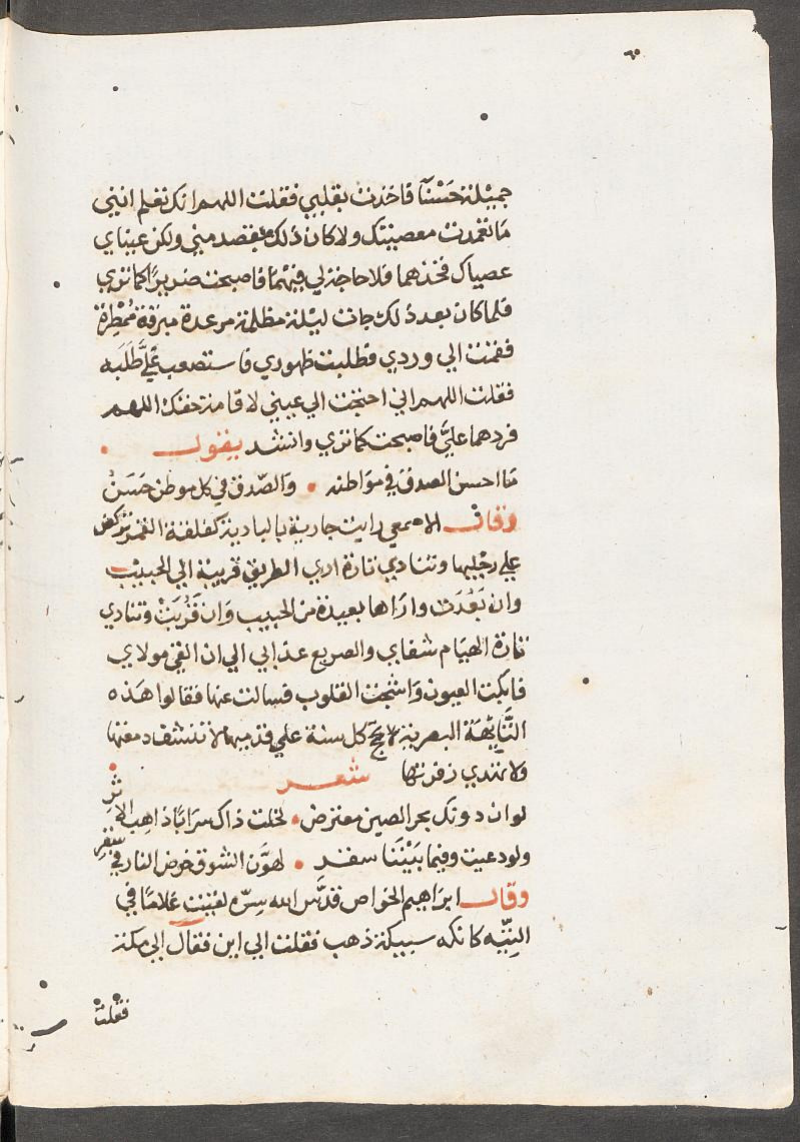 ٦٠
جميلة حَسْنَآ فاخذت بقلبي فقلت اللهم انك تعلم انني
مَا تعمدت معصيتك ولا كان ذلك بقصد مني ولكن عيناي
عصياك فخذهما فلا حاجة لي فيهمَا فاصبحت ضريرًا كما تري
فلما كان بعد ذلك جات ليلة مظلمة مرعدة مبرقة مُمْطِرَة
فقمت الي وردي فطلبت طهوري فاستصعب عَلَيَّ طَلَبه
فقلت اللهم اني احتجت الي عيني لاقامة حقك اللهم
فردهما عليَّ فاصبحت كما تري وانشد يقول
مَا احسن الصدق في موَاطنه • وَالصّدق في كل موطن حَسَنُ
وقال الاصمعي رايت جارية بالبادية كفلقة القمر تركض
علي رجليها وتنادي تارة اري الطريق قريبة الي الحبيب
وان بَعُدَت وارَاها بعيدة من الحبيب وَان قَرُبَتْ وتنادي
تارة الهيَام شفاي والصريع عذابي الي ان القي مولاي
فابكت العيون وَاشجت القلوب فسالت عنها فقالوا هَذه
التَّايِهَة البصرية تحج كل سنة علي قدميها لا تنشف دمعتها
ولا تهتدي زفرتها شعر
لو ان دونك بحر الصين معترض • لخلت ذاك سرَابًا ذاهب الاثرِ
ولو دعيت وفيما بَيْنَنَا سقر • لهوَّن الشوق خوض النار في سقرِ
وقال ابرَاهيم الخواص قدَّس الله سِرّه لقيت غلامًا في
التِيِّه كانه سبيكة ذهب فقلت الي اين فقال الي مكة
فقلت